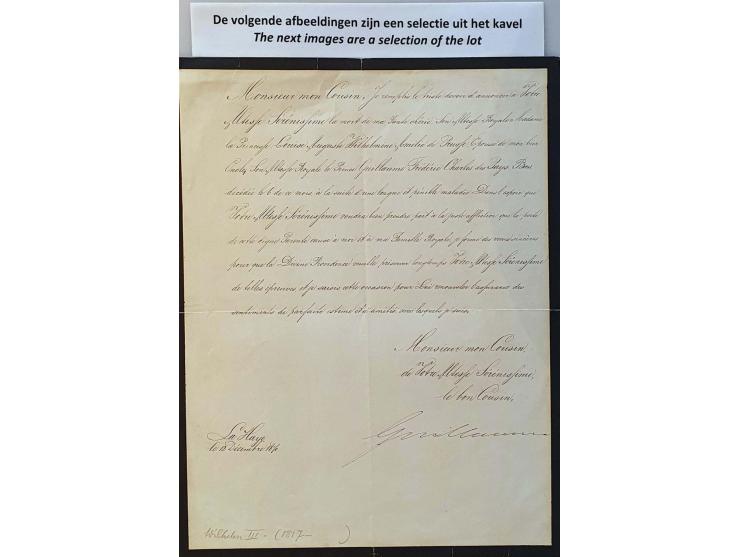 De volgende afbeeldingen zijn een selectie uit het kavel
The next images are a selection of the lot
Monsieur mon Cousin. Je remplis le triste devoir d'annoncer à Votre
Altesse Sérénissime la mort de ma Tante chérie Son Altesse Royale Madame
la Princesse Louise Auguste Wilhelmine Amélie de Prusse Epouse de mon bien
Oncle, Son Altesse Royale le Prince Guillaume Frédéric Charles des Pays-Bas
décédée le 6 de ce mois à la suite d'une longue et pénible maladie. Dans l'espoir que
Votre Altesse Sérénissime voudra bien prendre part à la juste affliction que la perte
de cette digne Parente cause à moi et à ma Famille Royale, je forme des vœux sincères
pour que la Divine Providence veuille préserver longtemps Votre Altesse Sérénissime
de telles épreuves et je saisis cette occasion pour Lui renouveler l'assurance des
sentiments de parfaite estime et d'amitié avec lesquels je suis
Monsieur mon Cousin,
de Votre Altesse Sérénissime,
le bon Cousin,
Guillaume
La Haye
le 13 Décembre 1870
Wilhelm III - (1817 )